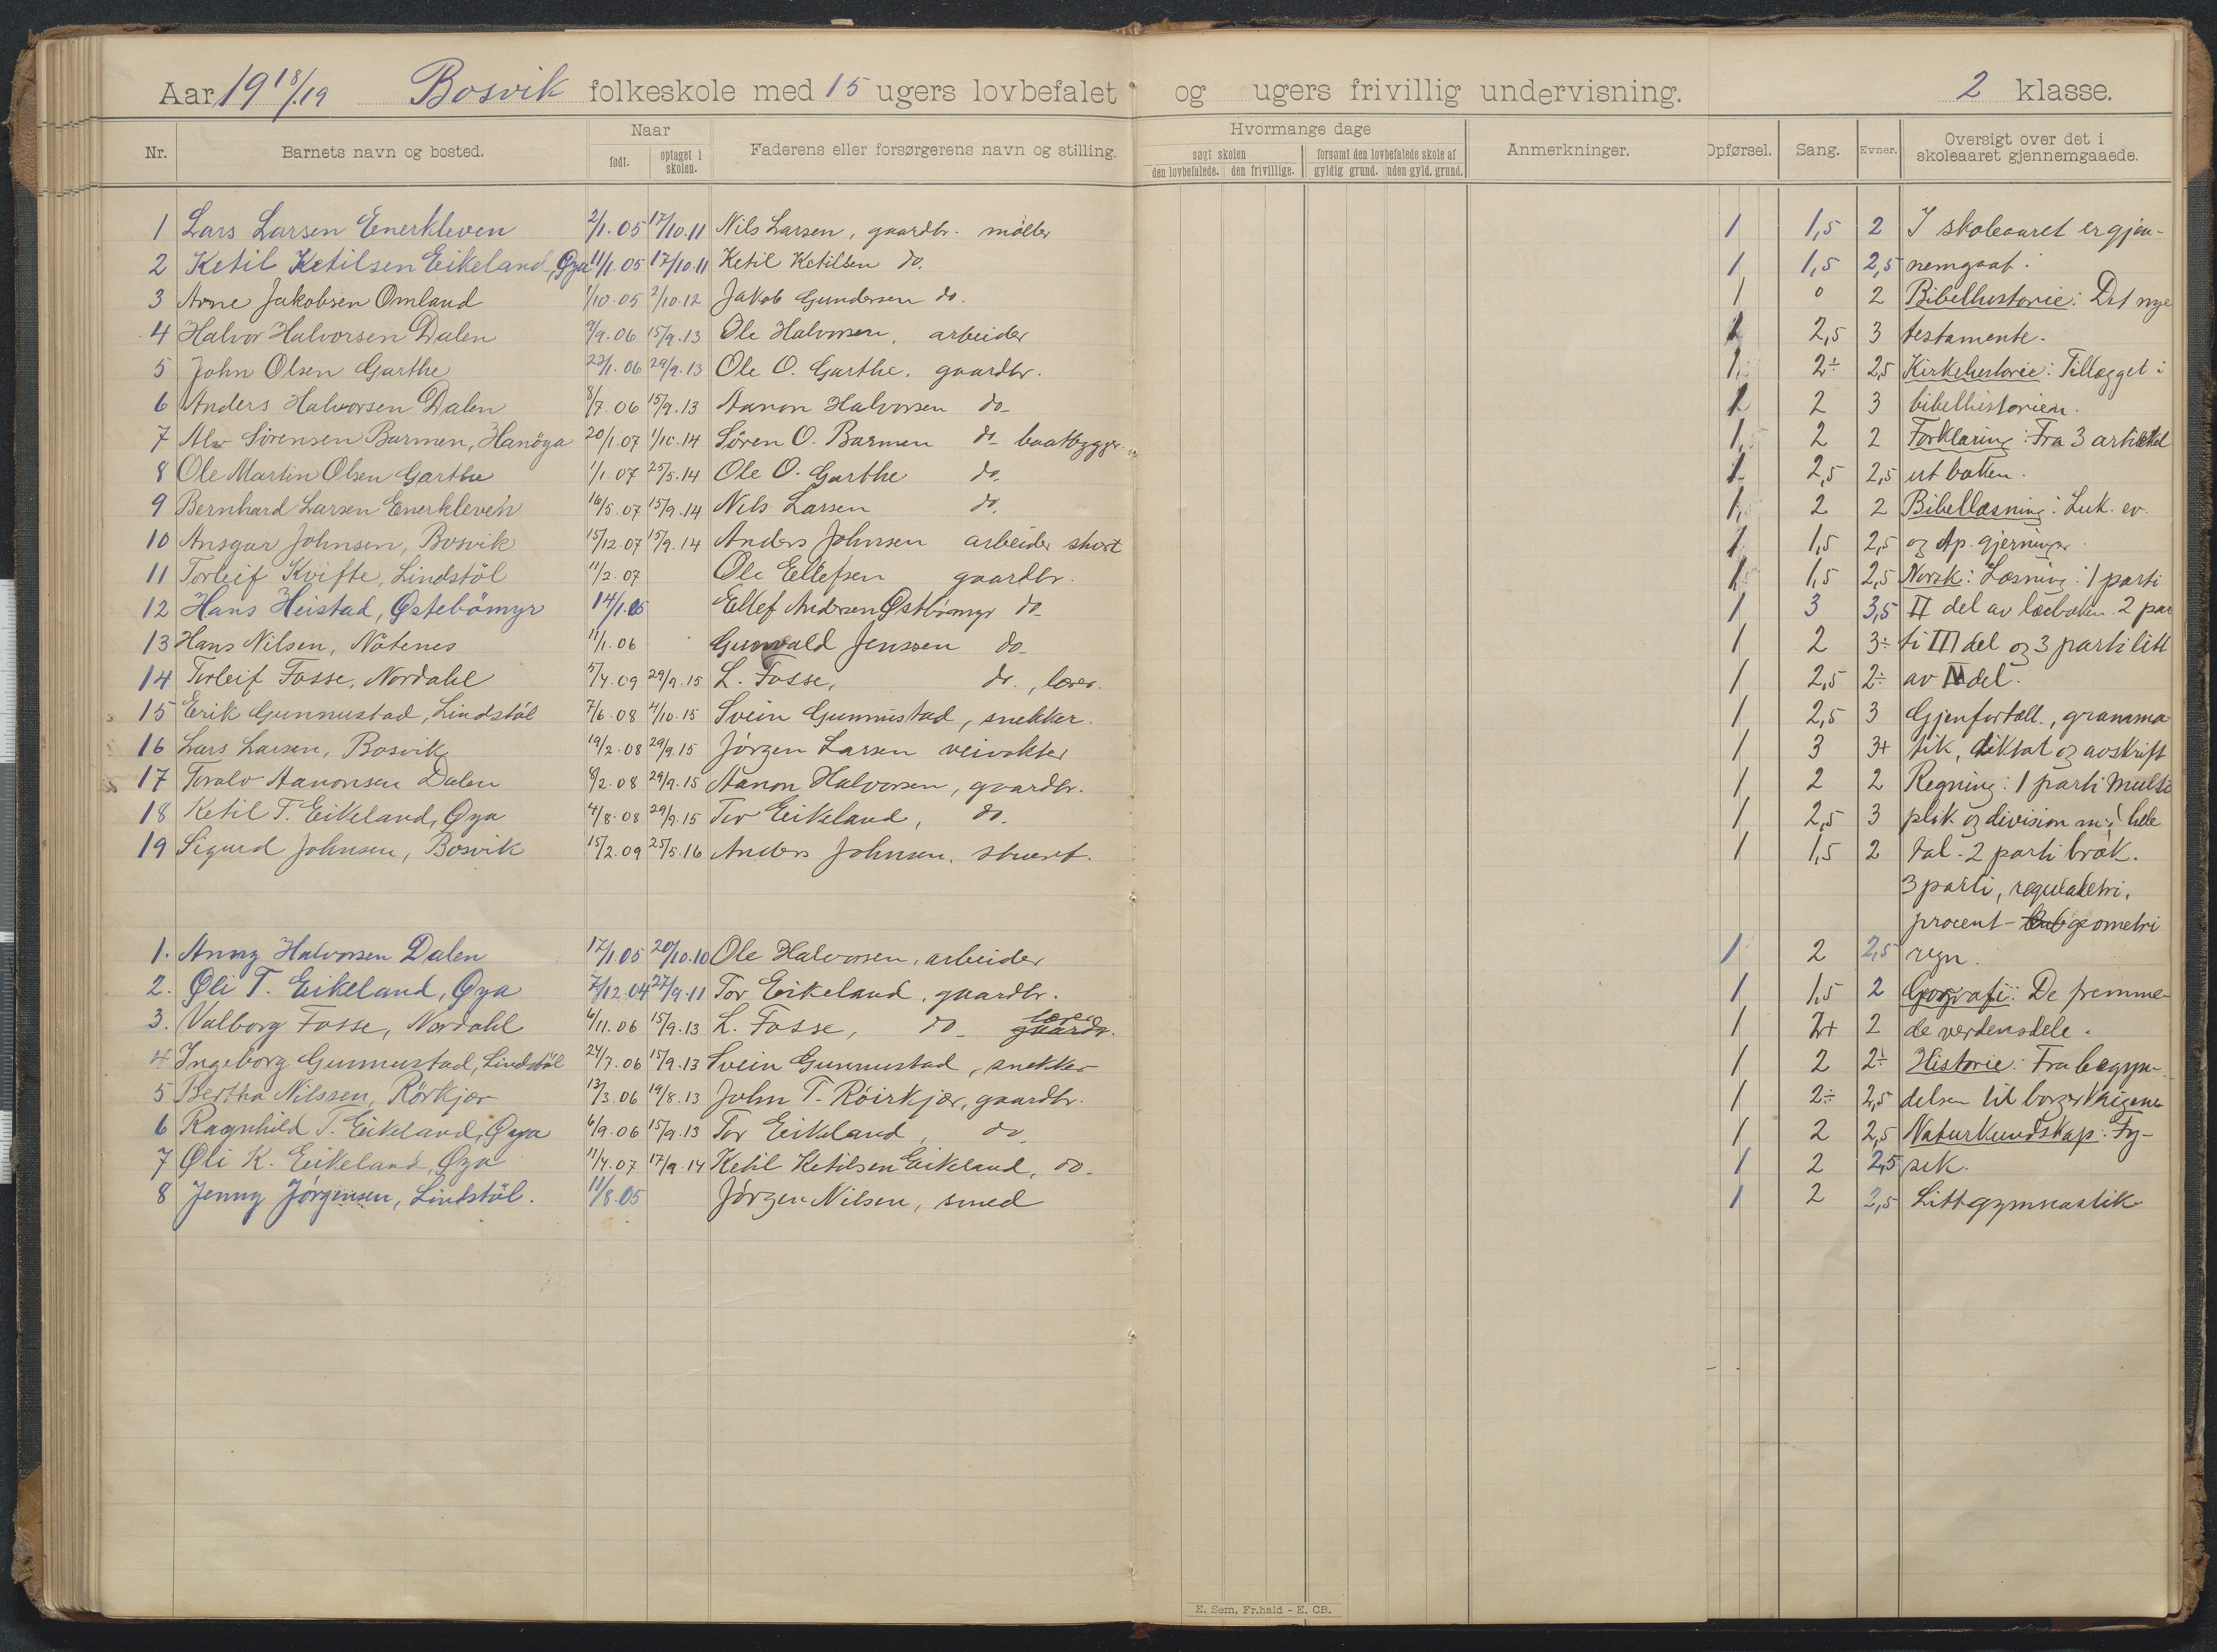 Aar 1918/19 Bosvik folkeskole med 15 ugers lovbefalet og ugers frivillig undervisning. 2 klasse.
Nr. Barnets navn og bosted. Naar født. optaget i skolen. Faderens eller forsørgerens navn og stilling. Hvormange dage søgt skolen den lovbefalede. den frivillige. forsømt den lovbefalede skole af gyldig grund. uden gyld. grund. Anmerkninger. Opførsel. Sang. Evner. Oversigt over det i skoleaaret gjennemgaaede.
1 Lars Larsen Enerkleven 2/1.05 17/10.11 Nils Larsen, gaardbr. møller 1 1,5 2 I skoleaaret er gjen-
2 Ketil Ketilsen Eikeland, Øya 11/1.05 17/10.11 Ketil Ketilsen do. 1 1,5 2,5 nemgaat:
3 Arne Jakobsen Omland 1/10.05 2/10.12 Jakob Gundersen do. 1 0 2 Bibelhistorie: Det nye
4 Halvor Halvorsen Dalen 9/9.06 15/9.13 Ole Halvorsen, arbeider 1 2,5 3 testamente.
5 John Olsen Garthe 22/1.06 29/9.13 Ole O. Garthe, gaardbr. 1 2÷ 2,5 Kirkehistorie: Tillægget i
6 Anders Halvorsen Dalen 8/7.06 15/9.13 Aanon Halvorsen do- 1 2 3 bibelhistorien.
7 Alv Sörensen Barmen, Hanöya 20/1.07 1/10.14 Sören O. Barmen do- baatbygger. 1 2 2 Forklaring: Fra 3 artikkel
8 Ole Martin Olsen Garthe 1/1.07 25/5.14 Ole O. Garthe do. 1 2,5 2,5 ut boken.
9 Bernhard Larsen Enerkleven 16/5.07 15/9.14 Nils Larsen do. 1 2 2 Bibellæsning: Luk. ev.
10 Ansgar Johnsen, Bosvik 15/12.07 15/9.14 Anders Johnsen arbeider stuert 1 1,5 2,5 og Ap. gjerninger.
11 Torleif Kvifte, Lindstöl 11/2.07 Ole Ellefsen gaardbr. 1 1,5 2,5 Norsk: Læsning: 1 parti
12 Hans Heistad, Østebömyr 14/1.05 Ellef Andersen Østbömyr do- 1 3 3,5 II del av læseboken 2 par
13 Hans Nilsen, Nötenes 11/1.06 Gunvald Jenssen do- 1 2 3÷ ti III del og 3 parti litt
14 Torleif Fosse, Nordahl 5/4.09 29/9.15 L. Fosse, do., lærer. 1 2,5 2÷ av IV del.
15 Erik Gunnustad, Lindstöl 7/6.08 4/10.15 Svein Gunnustad, snekker. 1 2,5 3 Gjenfortæll., gramma
16 Lars Larsen, Bosvik 19/2.08 29/9.15 Jörgen Larsen veivokter 1 3 3+ tik, diktat og avskrift
17 Toralv Aanonsen Dalen 8/2.08 29/9.15 Aanon Halvorsen, gaardbr. 1 2 2 Regning: 1 parti Multi
18 Ketil T. Eikeland, Øya 4/8.08 29/9.15 Tor Eikeland, do. 1 2,5 3 plik. og division m. hele
19 Sigurd Johnsen, Bosvik 15/2.09 25/5.16 Anders Johnsen, stuert. 1 1,5 2 tal. 2 parti brøk.
3 parti, reguladetri,
procent- geometri
1. Anny Halvorsen Dalen 17/1.05 20/10.10 Ole Halvorsen, arbeider 1 2 2,5 regn.
2. Øli T. Eikeland, Øya 7/12.04 27/9.11 Tor Eikeland, gaardbr. 1 1,5 2 Geografi: De fremme-
3. Valborg Fosse, Nordahl 6/11.06 15/9.13 L. Fosse, do- lærer gaardbr. 1 2+ 2 de verdensdele.
4 Ingeborg Gunnustad, Lindstöl 24/7.06 15/9.13 Svein Gunnustad, snekker 1 2 2÷ Historie: Fra begyn-
5 Bertha Nilssen, Rörkjær 13/3.06 19/8.13 John T. Röirkjær, gaardbr. 1 2÷ 2,5 delsen til borgerkrigene
6 Ragnhild T. Eikeland, Øya 6/9.06 15/9.13 Tor Eikeland, do 1 2 2,5 Naturkundskap: Fy-
7 Øli K. Eikeland, Øya 11/4.07 17/9.14 Ketil Ketilsen Eikeland, do- 1 2 2,5 sik.
8 Jenny Jörgensen, Lindstöl. 11/8.05 Jörgen Nilsen, smed 1 2 2,5 Litt gymnastik
E. Sem, Fr.hald - E. CB.